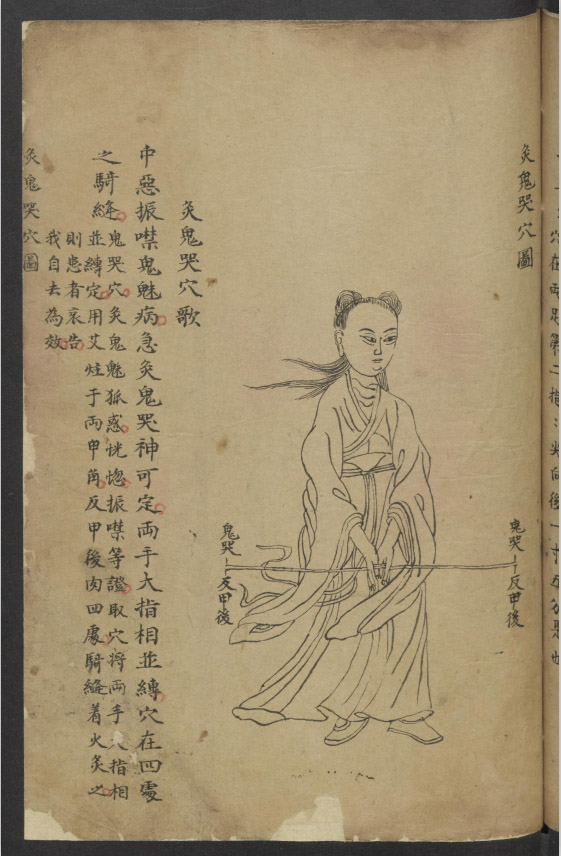 穴在両足第二指
尖向後一寸五分是也
灸鬼哭穴圖
鬼哭
反甲後
鬼哭
反甲後
灸鬼哭穴歌
中惡振噤鬼魅病急灸鬼哭神可定両手大指相並縛穴在四處
之騎縫
鬼哭穴灸鬼魅狐惑恍惚振噤等證取穴將両手大指相
並縛定用艾炷于両甲角反甲後肉四處騎縫着火灸之
則患者哀告
我自去為效
灸鬼哭穴圖